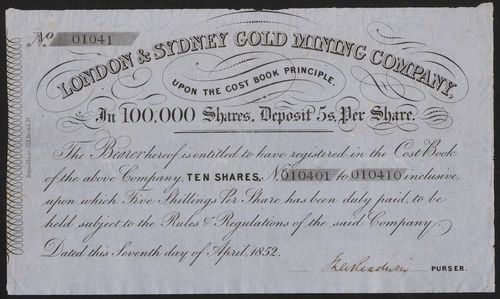 No. 01041
LONDON & SYDNEY GOLD MINING COMPANY,
UPON THE COST BOOK PRINCIPLE.
In 100,000 Shares, Deposit 5s, Per Share.
The Bearer hereof is entitled to have registered in the Cost Book
of the above Company, TEN SHARES, No. 010401 to 010410 inclusive,
upon which Five Shillings Per Share has been duly paid, to be
held subject to the Rules & Regulations of the said Company
Dated this Seventh day of April, 1852.
PURSER.